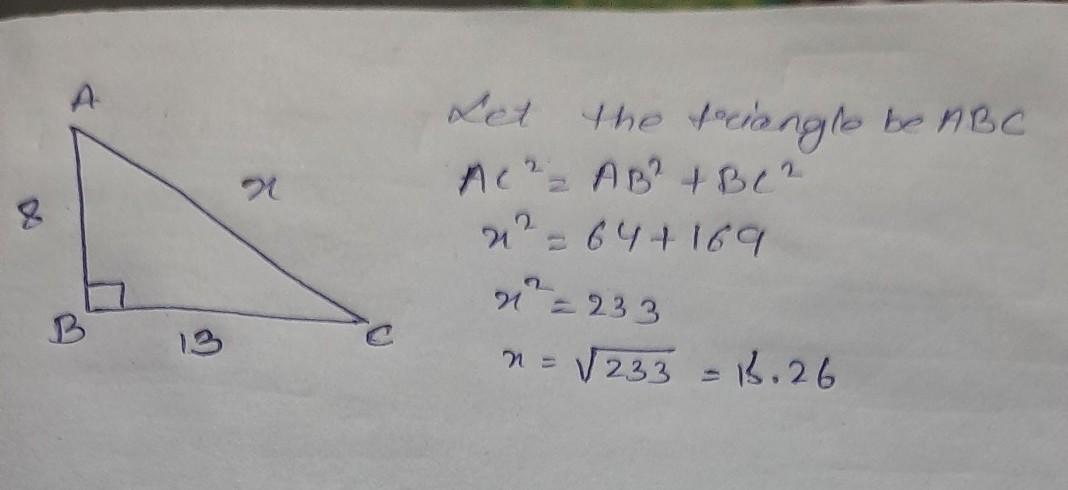 A
8
x
B
13
C
Let the triangle be ABC
AC² = AB² + BC²
x² = 64 + 169
x² = 233
x = √233 = 15.26